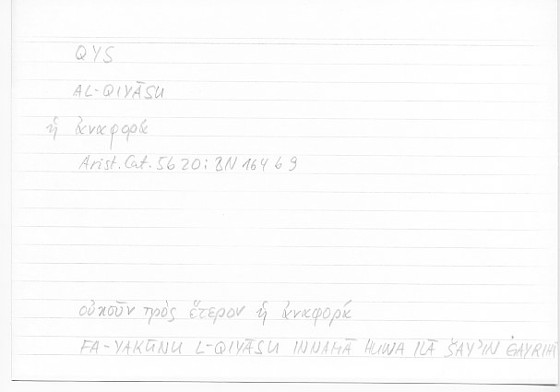 QYS
AL-QIYĀSU
ἡ ἀναφορά
Arist. Cat. 5b 20: BN 164 b 9
οὐκοῦν πρὸς ἕτερον ἡ ἀναφορά
FA-YAKŪNU L-QIYĀSU INNAMĀ HUWA ILĀ ŠAYʾIN ĠAYRIHĪ